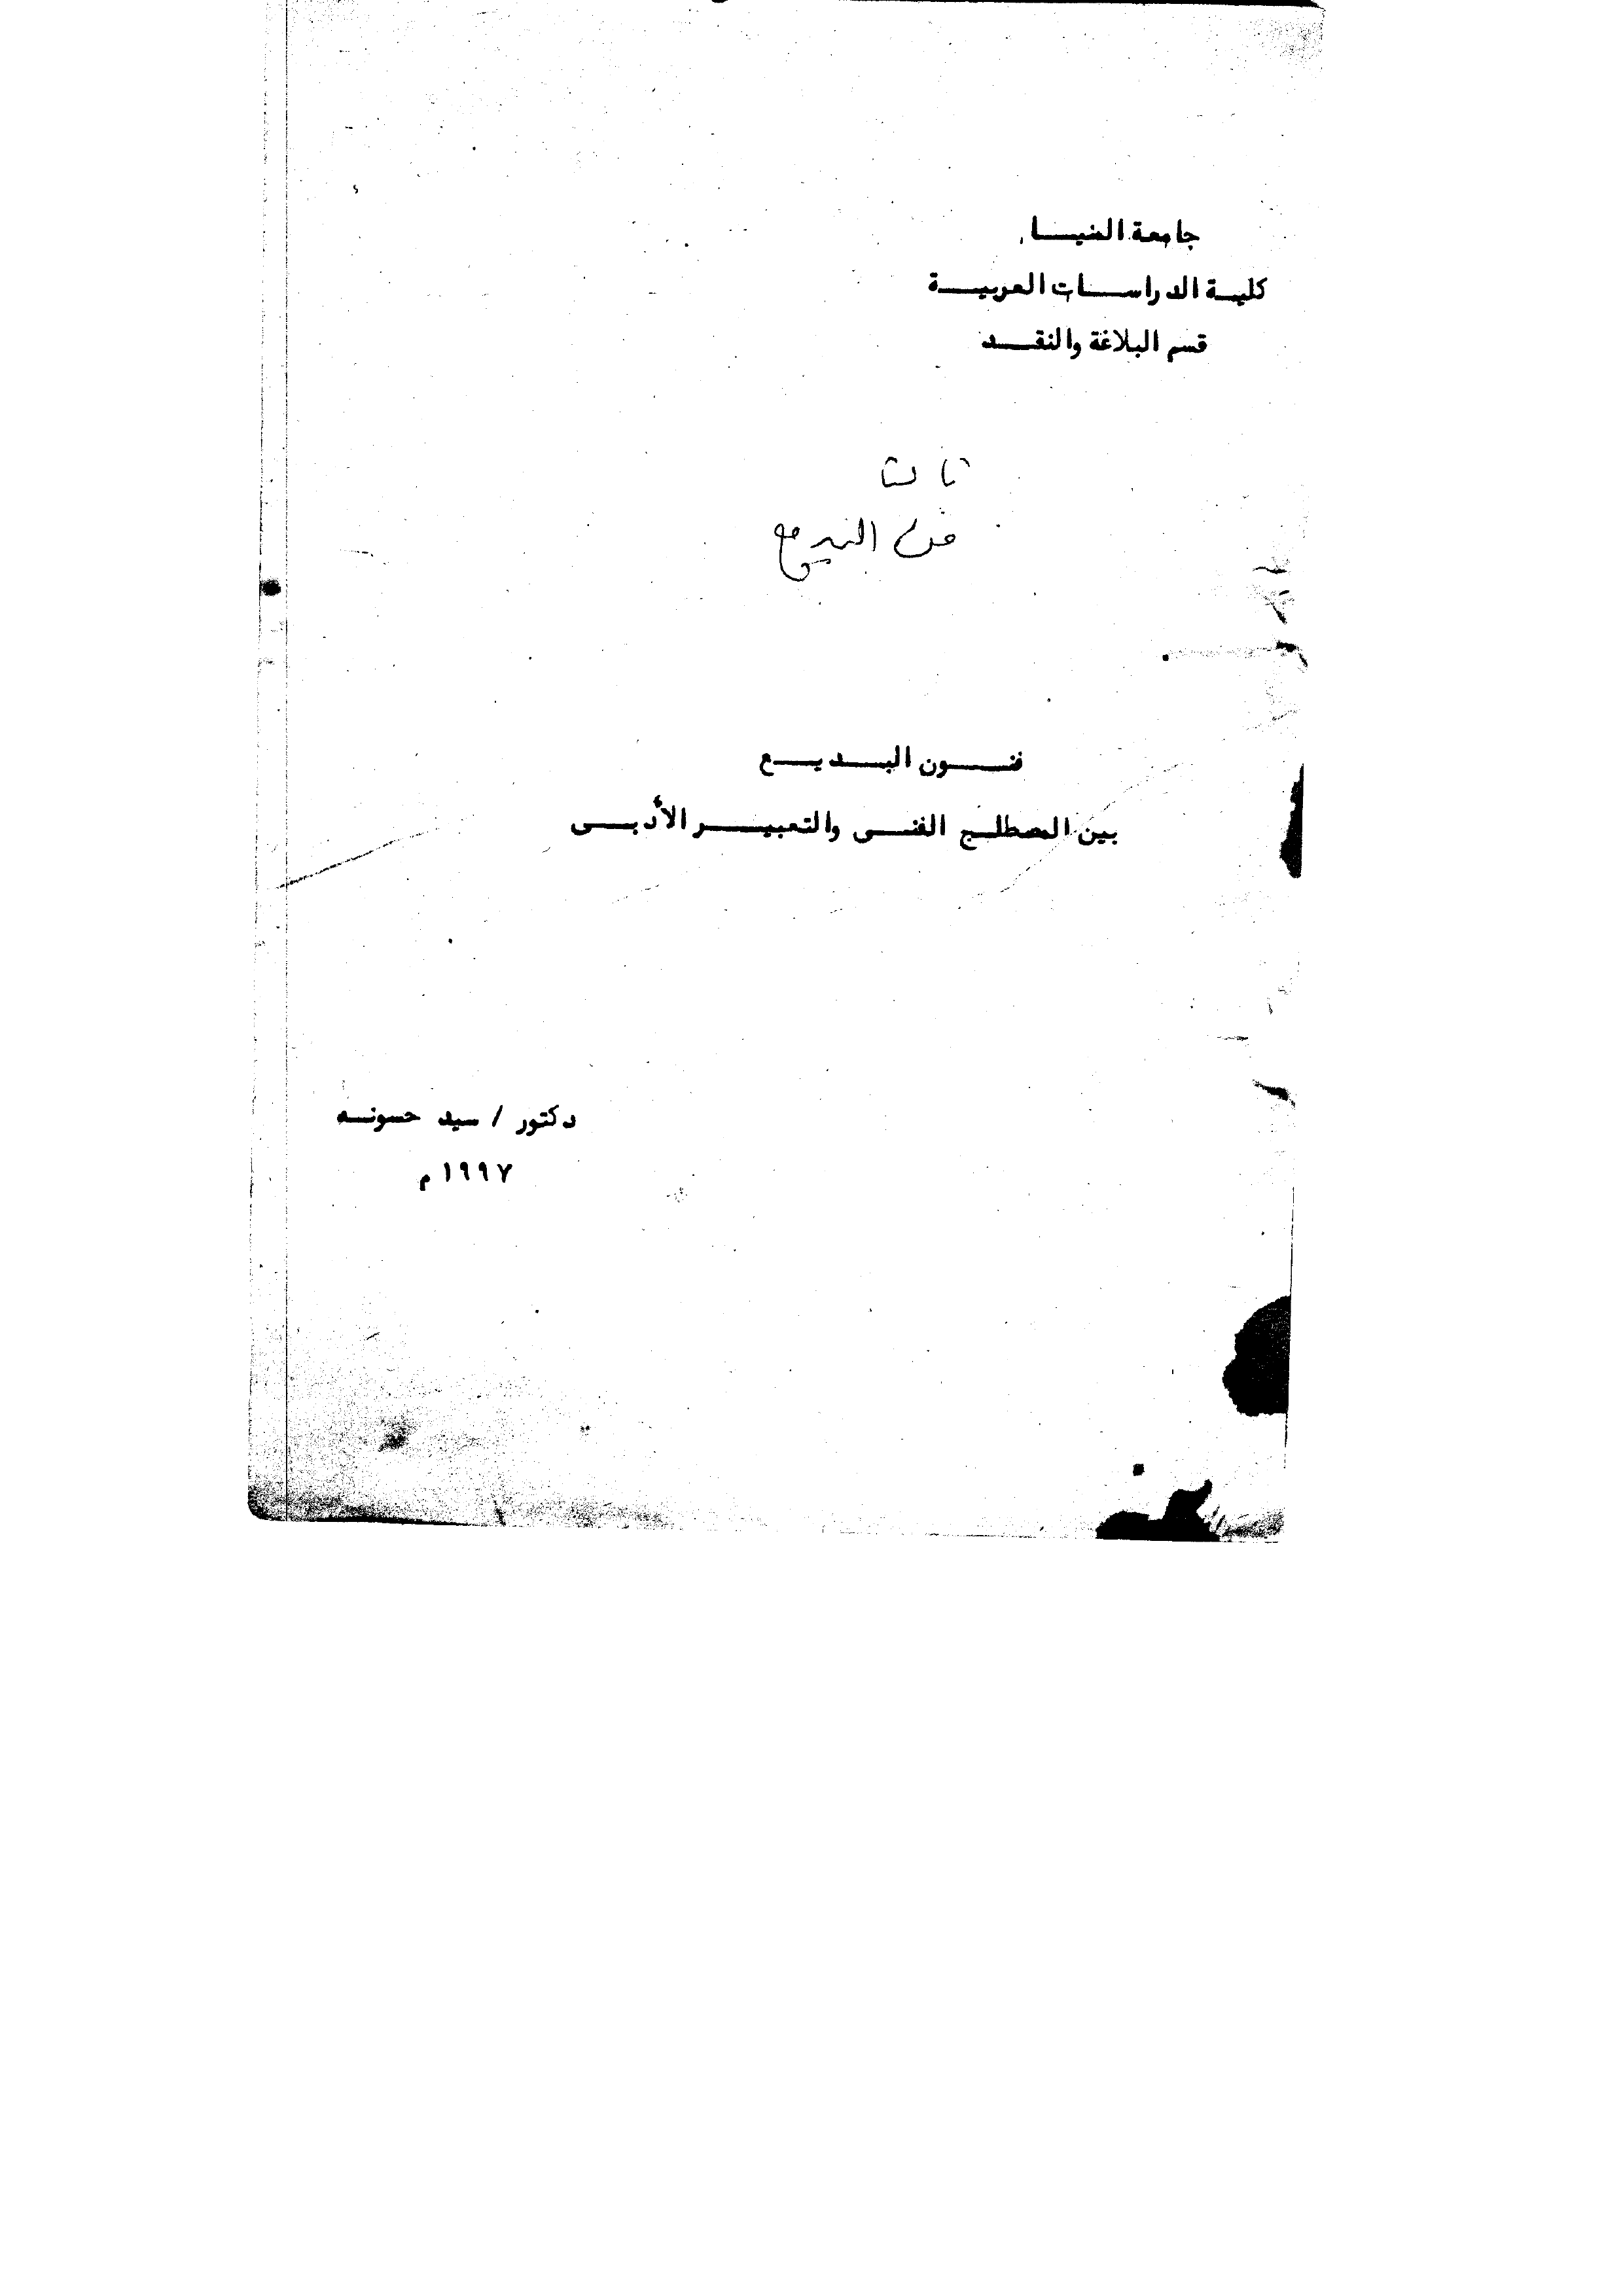 جامعة المنيا
كلية الدراسات العربية
قسم البلاغة والنقد
ثالث
فن البديع
فنون البديع
بين المصطلح الفنى والتعبير الأدبى
دكتور / سيد حسونه
١٩٩٧ م